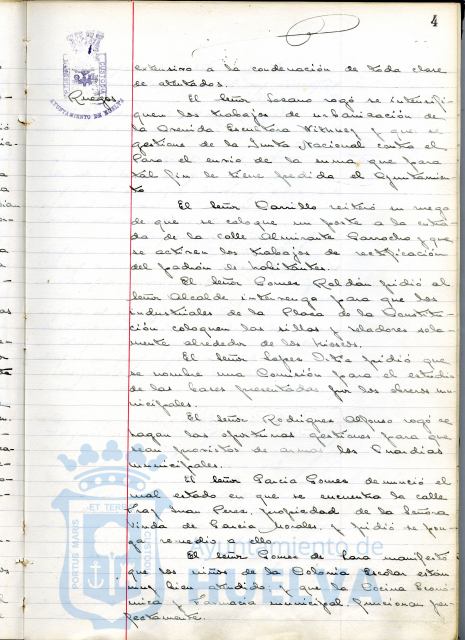 4
extensivo a la condenación de toda clase
de atentados.
Ruegos
El Señor Lozano rogó se intensifi-
quen los trabajos de urbanización de
la Avenida Escultora Withney y que se
gestione de la Junta Nacional contra el
Paro el envío de la suma que para
tal fin le tiene pedida el Ayuntamien-
to
El Señor Carrillo reiteró su ruego
de que se coloque un poste a la entra-
da de la calle Almirante Garrocho y que
se activen los trabajos de rectificación
del padrón de habitantes.
El Señor Gomez Roldán pidió al
Señor Alcalde intervenga para que los
industriales de la Plaza de la Constitu-
ción coloquen las sillas y veladores sola-
mente alrededor de los kioscos.
El Señor Lopez pidió que
se nombre una Comisión para el estudio
de las bases presentadas por los obreros mu-
nicipales.
El Señor Rodriguez Alfonso rogó se
hagan las oportunas gestiones para que
sean provistos de armas los Guardias
municipales.
El Señor Garcia Gomez denunció el
mal estado en que se encuentra la calle
Fray Juan Perez, propiedad de la Señora
Viuda de Garcia Morales, y pidió se pon-
ga remedio a ello.
El Señor Gomez de Lara manifestó
que los niños de la Colonia Escolar están
muy bien atendidos y que la Cocina Econó-
mica y Farmacia municipal funcionan per-
fectamente.
AYUNTAMIENTO DE HUELVA
PORTUS MARIS ET TERRE CUSTODIA
Ayuntamiento de
HUELVA